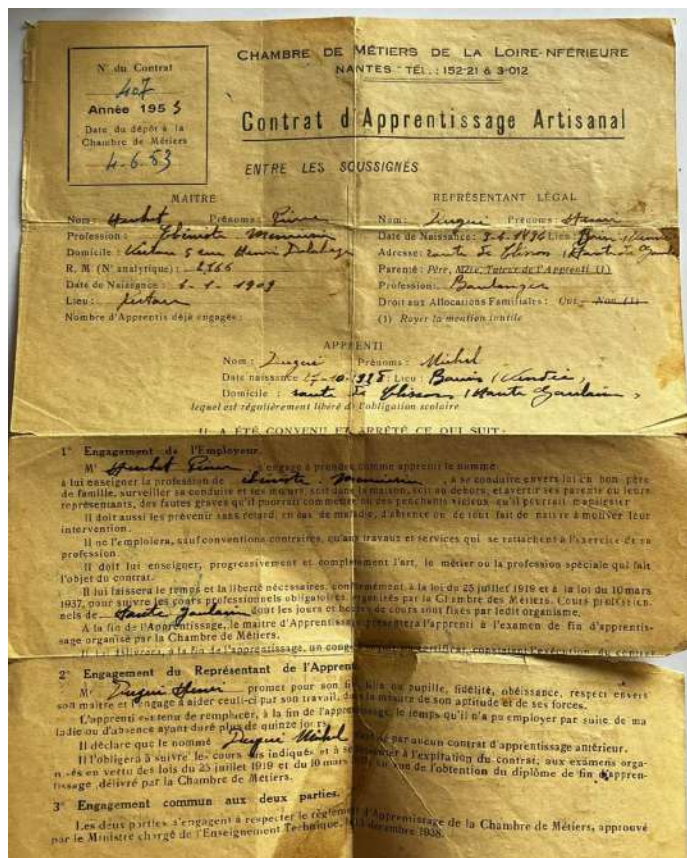 CHAMBRE DE MÉTIERS DE LA LOIRE-NFÉRIEURE
NANTES - TÉL. : 152-21 & 3-012
N° du Contrat
407
Année 1953
Date du dépôt à la
Chambre de Métiers
4-6-53
Contrat d'Apprentissage Artisanal
ENTRE LES SOUSSIGNÉS
MAITRE
Nom : Prénoms : Pierre
Profession : Ebéniste Menuisier
Domicile : Vertou 5 rue Henri
R. M (N° analytique) : 2766
Date de Naissance : 6-1-1909
Lieu : Vertou
Nombre d'Apprentis déjà engagés :
REPRÉSENTANT LÉGAL
Nom : Prénoms : Henri
Date de Naissance : Lieu :
Adresse : route de Clisson (Haute
Parenté : Père, Mère, Tuteur de l'Apprenti (1)
Profession : Boulanger
Droit aux Allocations Familiales : Oui - Non (1)
(1) Rayer la mention inutile
APPRENTI
Nom : Prénoms : Michel
Date naissance Lieu : (Vendée)
Domicile : route de Clisson (Haute Goulaine)
lequel est régulièrement libéré de l'obligation scolaire
IL A ÉTÉ CONVENU ET ARRÊTÉ CE QUI SUIT :
1° Engagement de l'Employeur.
M' Pierre, s'engage à prendre comme apprenti le nommé
à lui enseigner la profession de ébéniste menuisier, à se conduire envers lui en bon père
de famille, surveiller sa conduite et ses mœurs, soit dans la maison, soit au dehors, et avertir ses parents ou leurs
représentants, des fautes graves qu'il pourrait commettre ou des penchants vicieux qu'il pourrait manifester
Il doit aussi les prévenir sans retard, en cas de maladie, d'absence ou de tout fait de nature à motiver leur
intervention.
Il ne l'emploiera, sauf conventions contraires, qu'aux travaux et services qui se rattachent à l'exercice de sa
profession.
Il doit lui enseigner, progressivement et complètement l'art, le métier ou la profession spéciale qui fait
l'objet du contrat.
Il lui laissera le temps et la liberté nécessaires, conformément, à la loi du 25 juillet 1919 et à la loi du 10 mars
1937, pour suivre les cours professionnels obligatoires, organisés par la Chambre des Métiers. Cours profession-
nels de Haute Goulaine dont les jours et heures de cours sont fixés par ledit organisme.
A la fin de l'Apprentissage, le maitre d'Apprentissage présentera l'apprenti à l'examen de fin d'apprentis-
sage organisé par la Chambre de Métiers.
Il lui délivrera, à la fin de l'apprentissage, un congé ou certificat, constatant l'exécution du contrat
2° Engagement du Représentant de l'Apprenti.
M' Henri promet pour son fils, fille ou pupille, fidélité, obéissance, respect envers
son maître et s'engage à aider celui-ci par son travail, dans la mesure de son aptitude et de ses forces.
L'apprenti est tenu de remplacer, à la fin de l'apprentissage, le temps qu'il n'a pu employer par suite de ma
ladie ou d'absence ayant duré plus de quinze jours.
Il déclare que le nommé Michel par aucun contrat d'apprentissage antérieur.
Il l'obligera à suivre les cours indiqués et à se à l'expiration du contrat, aux examens orga-
nisés en vertu des lois du 25 juillet 1919 et du 10 mars en vue de l'obtention du diplôme de fin d'appren-
tissage, délivré par la Chambre de Métiers.
3° Engagement commun aux deux parties.
Les deux parties s'engagent à respecter le règlement d'Apprentissage de la Chambre de Métiers, approuvé
par le Ministre chargé de l'Enseignement Technique, le 13 décembre 1938.